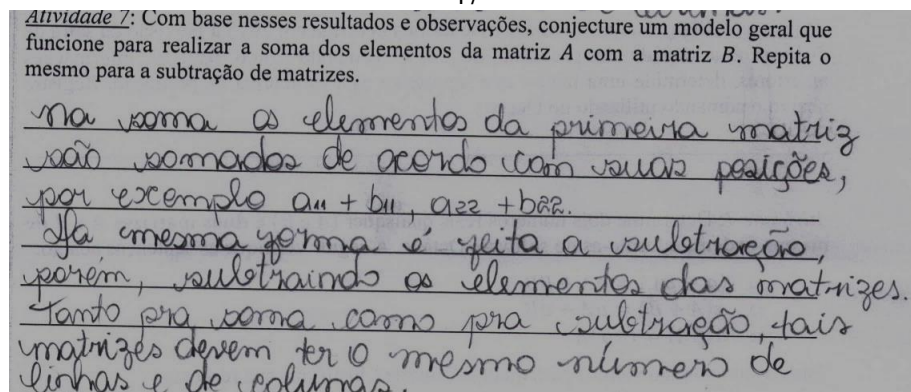 Atividade 7: Com base nesses resultados e observações, conjecture um modelo geral que
funcione para realizar a soma dos elementos da matriz A com a matriz B. Repita o
mesmo para a subtração de matrizes.
na soma os elementos da primeira matriz
são somados de acordo com suas posições,
por exemplo a11 + b11, a22 + b22.
Da mesma forma é feita a subtração,
porem, subtraindo os elementos das matrizes.
Tanto pra soma como pra subtração, tais
matrizes devem ter o mesmo número de
linhas e de colunas.